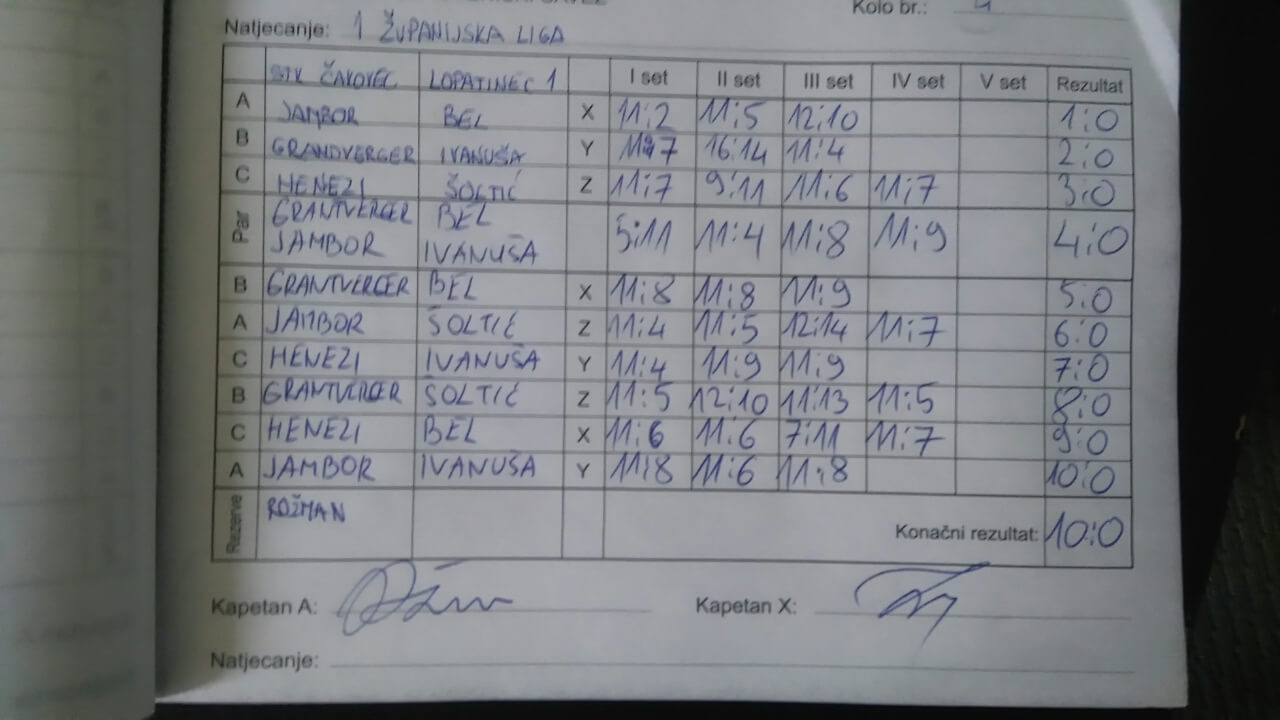 Kolo br.: 4
Natjecanje: 1 ŽUPANIJSKA LIGA
STK ČAKOVEC LOPATINEC 1 I set II set III set IV set V set Rezultat
A JAMBOR BEL X 11:2 11:5 12:10 1:0
B GRANDVERGER IVANUŠA Y 11:7 16:14 11:4 2:0
C HENEZI ŠOLTIĆ Z 11:7 9:11 11:6 11:7 3:0
Par GRANTVERGER BEL 5:11 11:4 11:8 11:9 4:0
JAMBOR IVANUŠA
B GRANTVERGER BEL X 11:8 11:8 11:9 5:0
A JAMBOR ŠOLTIĆ Z 11:4 11:5 12:14 11:7 6:0
C HENEZI IVANUŠA Y 11:4 11:9 11:9 7:0
B GRANTVERGER ŠOLTIĆ Z 11:5 12:10 11:13 11:5 8:0
C HENEZI BEL X 11:6 11:6 7:11 11:7 9:0
A JAMBOR IVANUŠA Y 11:8 11:6 11:8 10:0
Rezerve ROŽMAN
Konačni rezultat: 10:0
Kapetan A: Kapetan X:
Natjecanje: